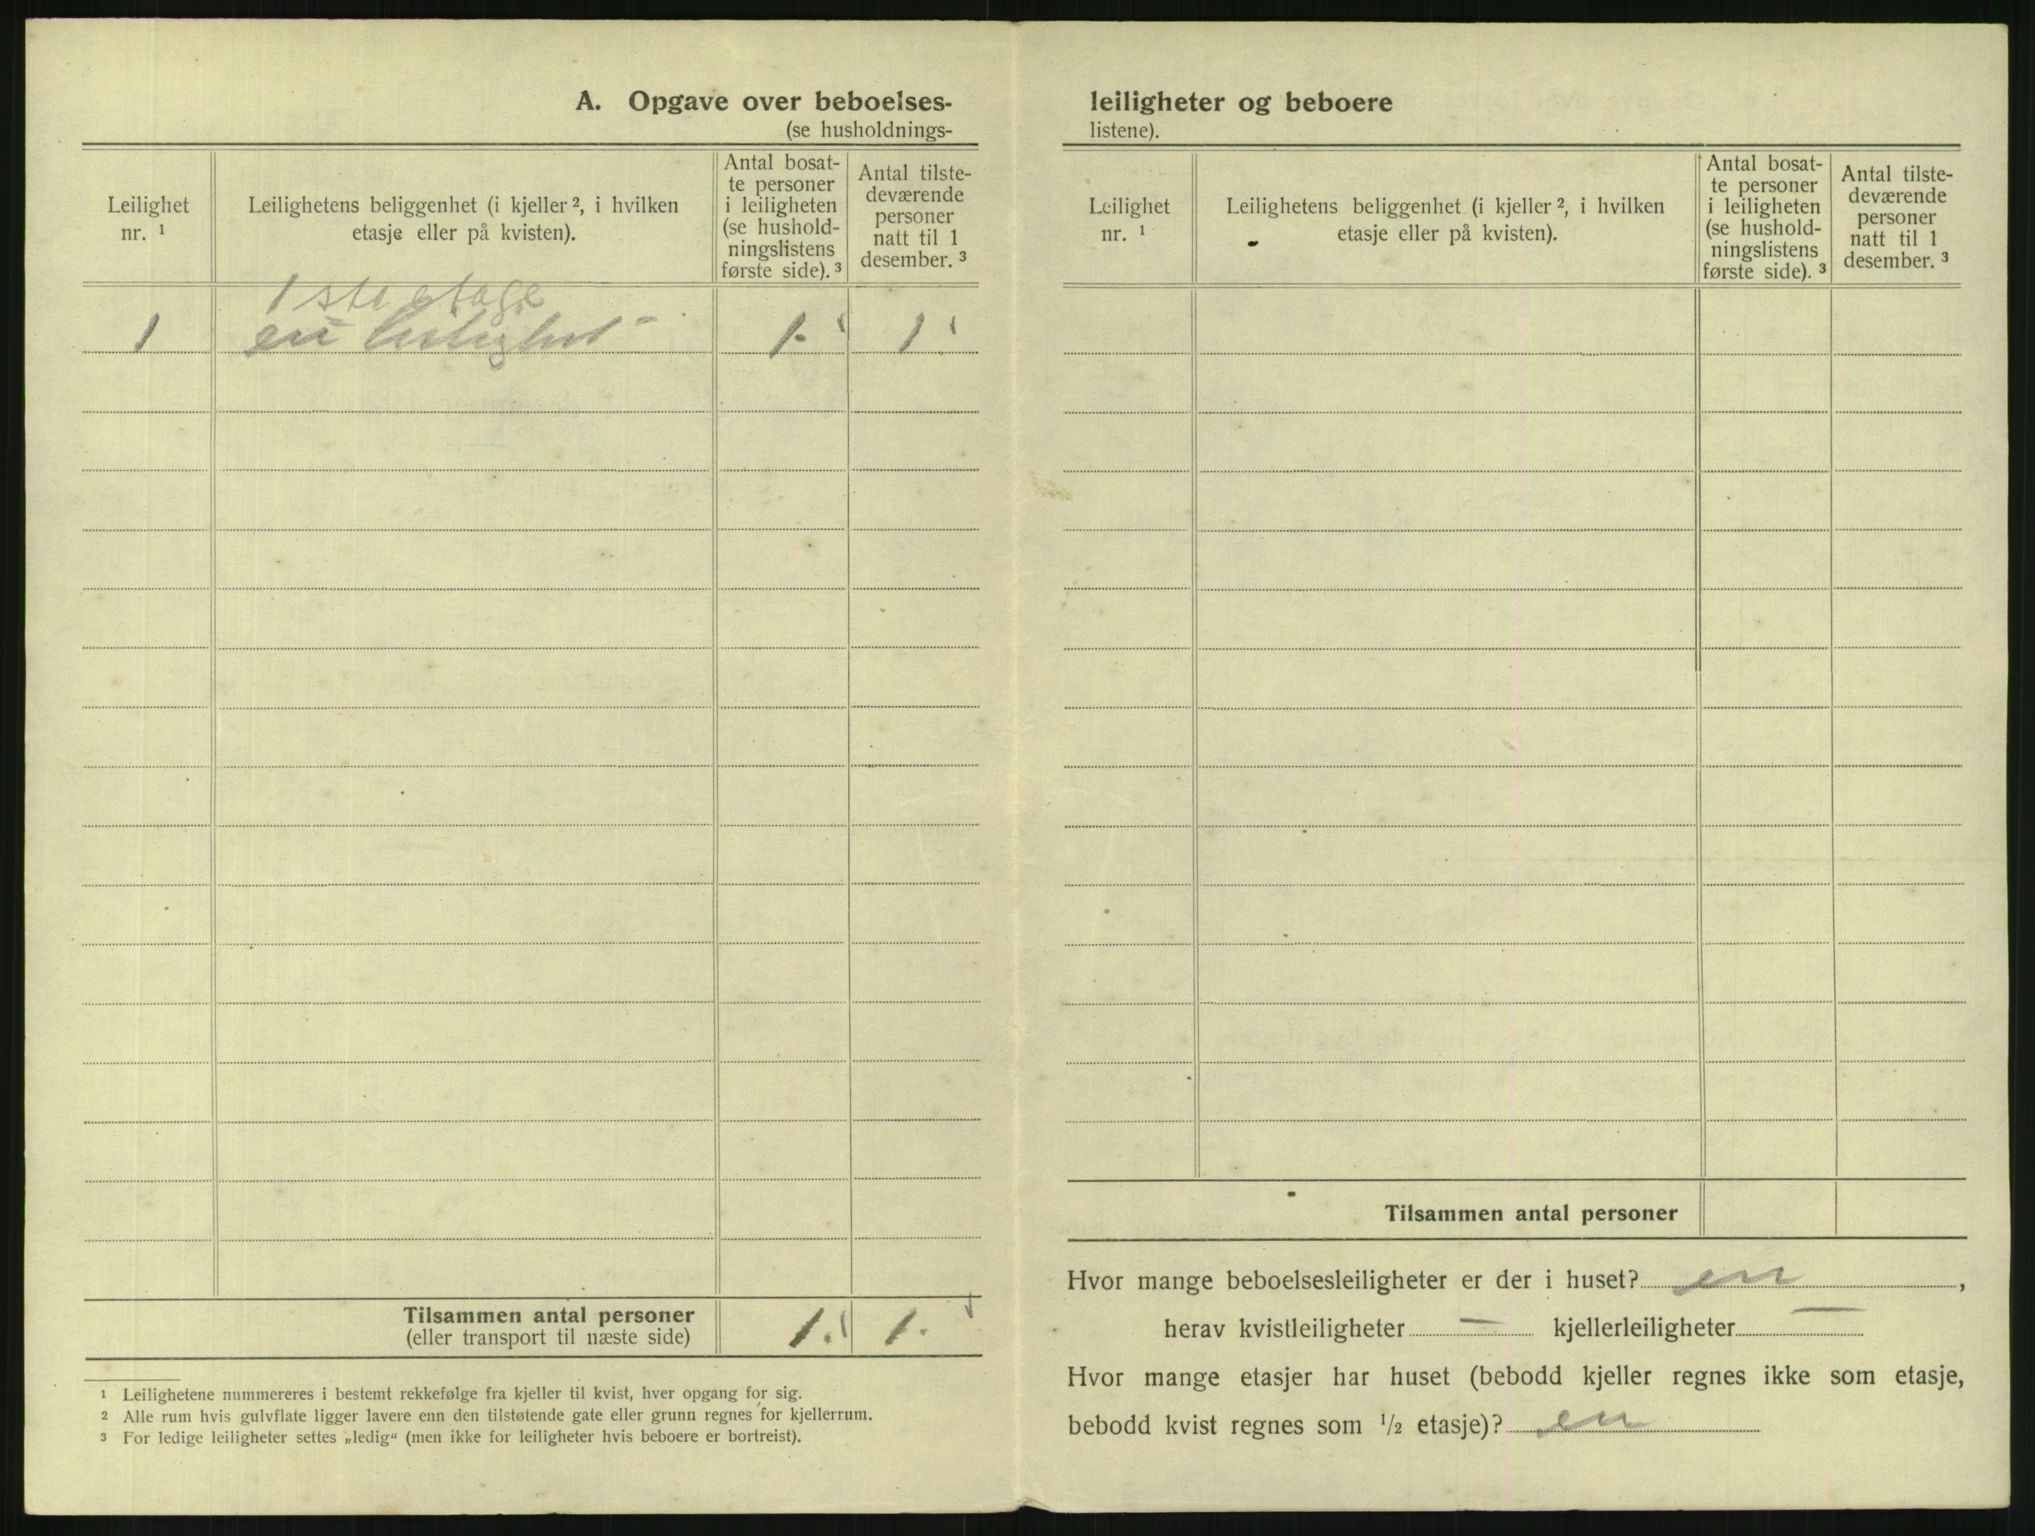 A. Opgave over beboelses-
(se husholdnings-
Leilighet
nr. ¹
Leilighetens beliggenhet (i kjeller ², i hvilken
etasje eller på kvisten).
Antal bosat-
te personer
i leiligheten
(se hushold-
ningslistens
første side). ³
Antal tilste-
deværende
personer
natt til 1
desember. ³
1 ste etage
1 en leilighet 1. 1
Tilsammen antal personer
(eller transport til næste side)
1. 1.
¹ Leilighetene nummereres i bestemt rekkefølge fra kjeller til kvist, hver opgang for sig.
² Alle rum hvis gulvflate ligger lavere enn den tilstøtende gate eller grunn regnes for kjellerrum.
³ For ledige leiligheter settes „ledig“ (men ikke for leiligheter hvis beboere er bortreist).
leiligheter og beboere
listene).
Leilighet
nr. ¹
Leilighetens beliggenhet (i kjeller ², i hvilken
etasje eller på kvisten).
Antal bosat-
te personer
i leiligheten
(se hushold-
ningslistens
første side). ³
Antal tilste-
deværende
personer
natt til 1
desember. ³
Tilsammen antal personer
Hvor mange beboelsesleiligheter er der i huset? en ,
herav kvistleiligheter — kjellerleiligheter —
Hvor mange etasjer har huset (bebodd kjeller regnes ikke som etasje,
bebodd kvist regnes som ½ etasje)? en